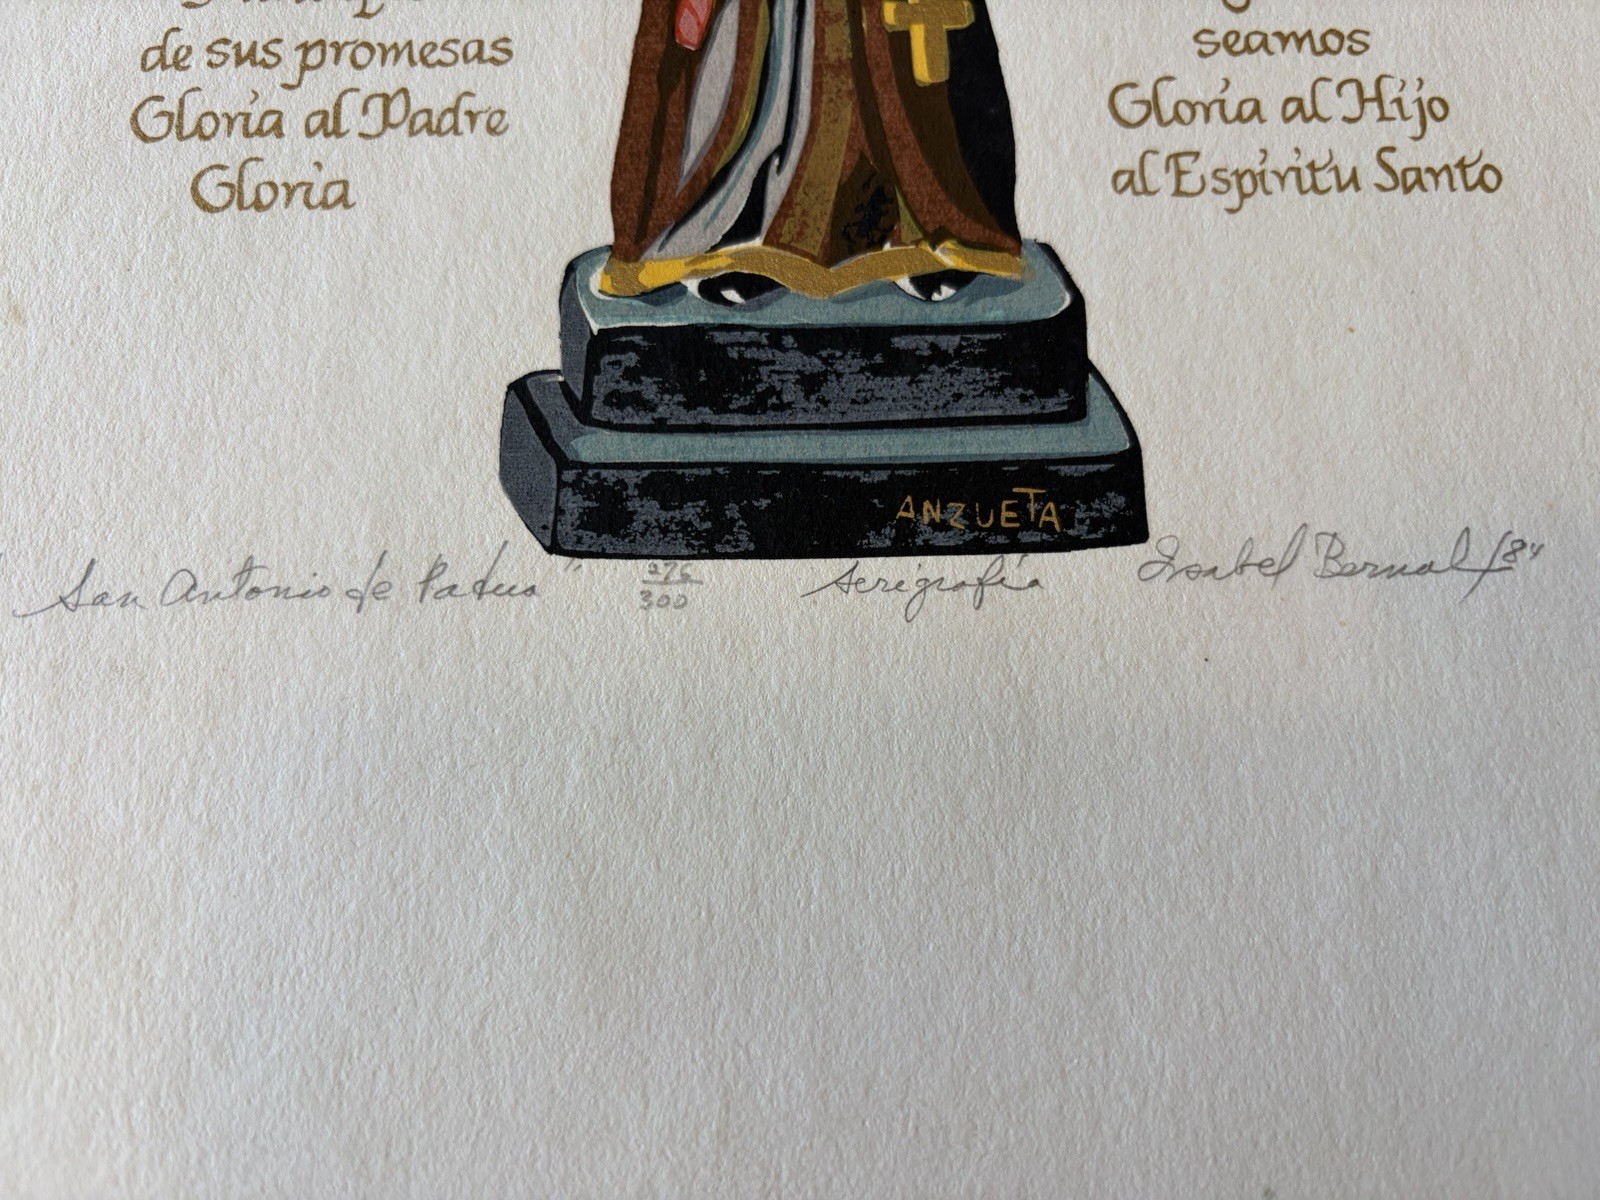 de sus promesas
Gloria al Padre
Gloria
seamos
Gloria al Hijo
al Espíritu Santo
ANZUETA
San Antonio de Padua"
276/300
Serigrafía
Isabel Bernal /84